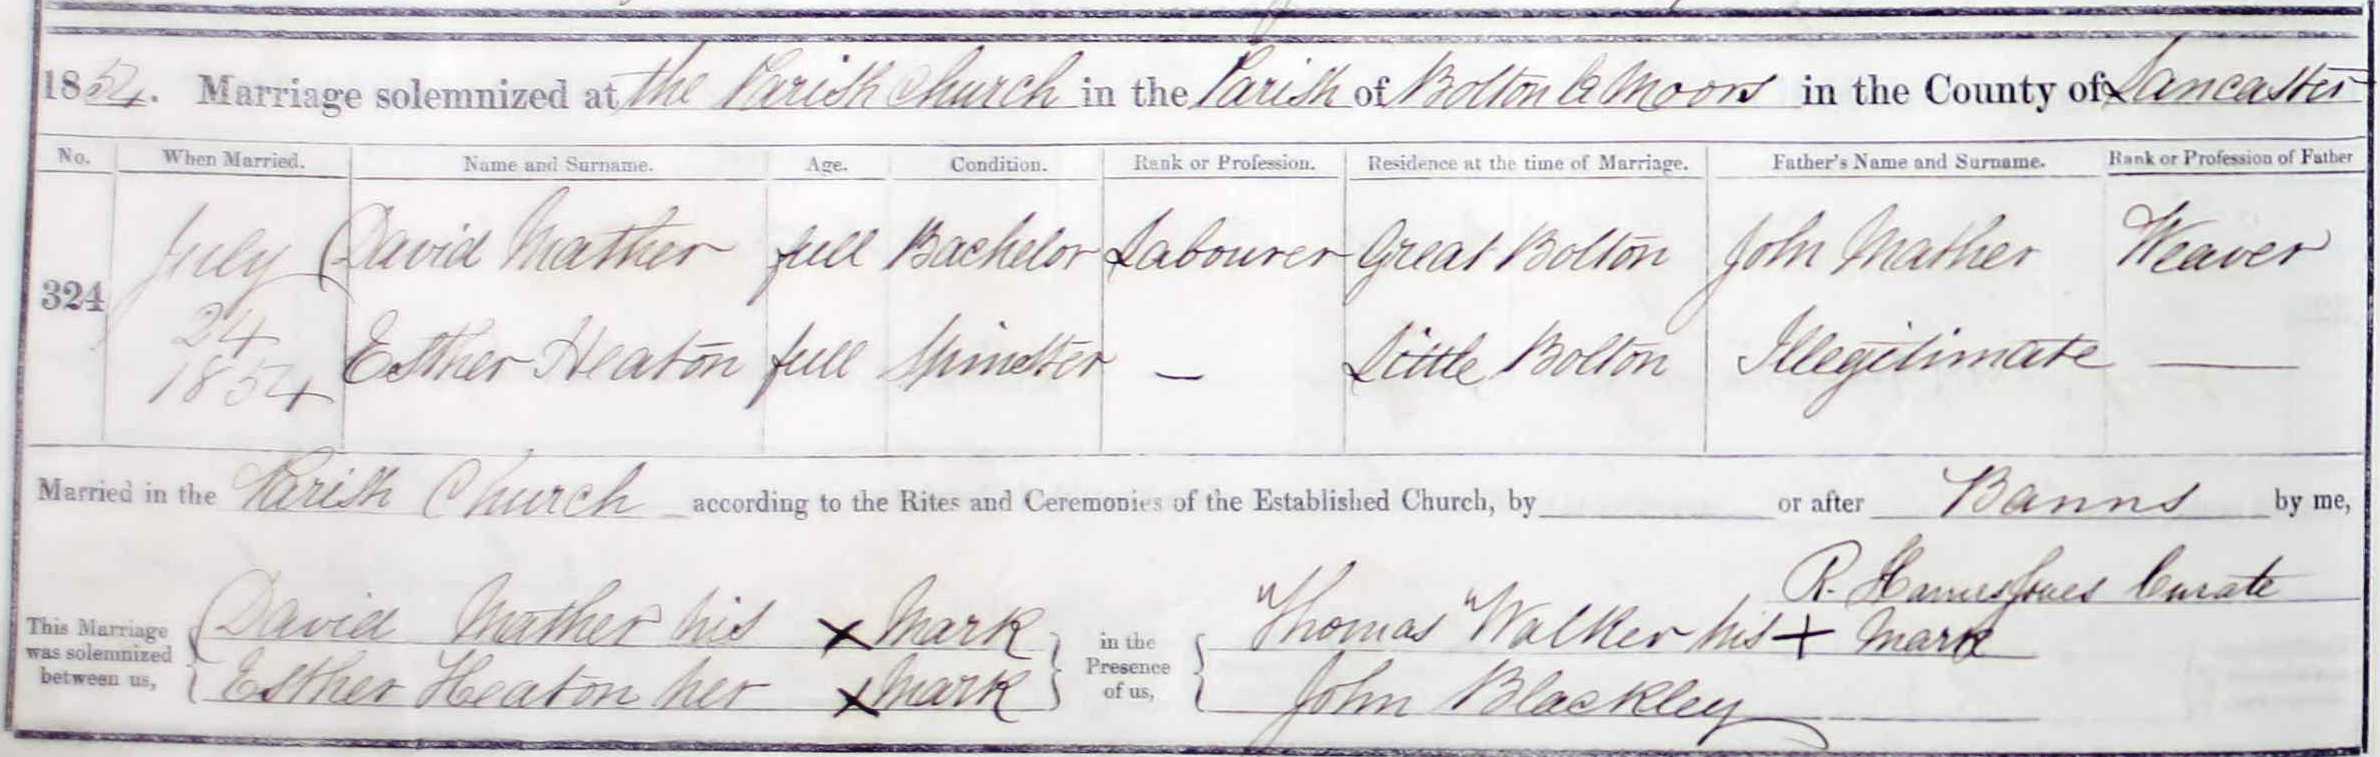 1854. Marriage solemnized at the Parish Church in the Parish of Bolton le Moors in the County of Lancaster
No. When Married. Name and Surname. Age. Condition. Rank or Profession. Residence at the time of Marriage. Father's Name and Surname. Rank or Profession of Father
324 July 24 1854 David Mather full Bachelor Labourer Great Bolton John Mather Weaver
Esther Heaton full Spinster — Little Bolton Illegitimate —
Married in the Parish Church according to the Rites and Ceremonies of the Established Church, by or after Banns by me,
R. Curate
This Marriage was solemnized between us, David Mather his X Mark in the Presence of us, Thomas Walker his + Mark
Esther Heaton her X Mark John Blackley